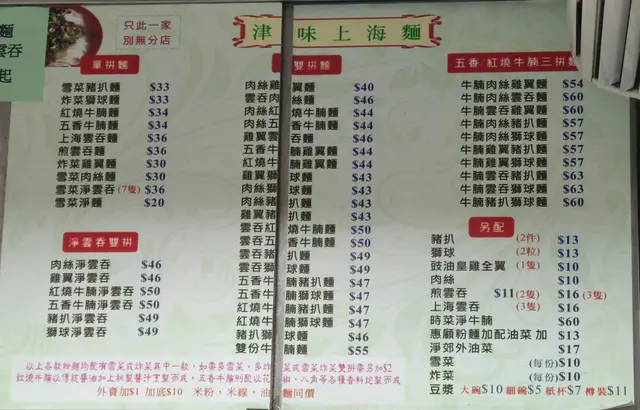 麵
雲吞
起
只此一家
別無分店
津味上海麵
單拼麵
雪菜豬扒麵 $33
炸菜獅球麵 $33
紅燒牛腩麵 $34
五香牛腩麵 $34
上海雲吞麵 $36
煎雲吞麵 $36
炸菜雞翼麵 $30
雪菜肉絲麵 $30
雪菜淨雲吞(7隻) $36
雪菜淨麵 $20
淨雲吞雙拼
肉絲淨雲吞 $46
雞翼淨雲吞 $46
紅燒牛腩淨雲吞 $50
五香牛腩淨雲吞 $50
豬扒淨雲吞 $49
獅球淨雲吞 $49
雙拼麵
肉絲雞翼麵 $40
雲吞肉絲麵 $46
肉絲紅燒牛腩麵 $44
肉絲五香牛腩麵 $44
雞翼雲吞麵 $46
五香牛腩雞翼麵 $44
紅燒牛腩雞翼麵 $44
雞翼獅球麵 $43
肉絲獅球麵 $43
肉絲豬扒麵 $43
雞翼豬扒麵 $43
雲吞紅燒牛腩麵 $50
雲吞五香牛腩麵 $50
雲吞豬扒麵 $49
雲吞獅球麵 $49
五香牛腩豬扒麵 $47
五香牛腩獅球麵 $47
紅燒牛腩豬扒麵 $47
紅燒牛腩獅球麵 $47
雙份牛腩麵 $55
五香 紅燒牛腩三拼麵
牛腩肉絲雞翼麵 $54
牛腩肉絲雲吞麵 $60
牛腩雞翼雲吞麵 $60
牛腩肉絲豬扒麵 $57
牛腩肉絲獅球麵 $57
牛腩雞翼豬扒麵 $57
牛腩雞翼獅球麵 $57
牛腩雲吞豬扒麵 $63
牛腩雲吞獅球麵 $63
牛腩豬扒獅球麵 $60
另配
豬扒 (2件) $13
獅球 (2粒) $13
豉油皇雞全翼 (1隻) $10
肉絲 $10
煎雲吞 $11(2隻) $16 (3隻)
上海雲吞 (3隻) $16
時菜淨牛腩 $60
惠顧粉麵加配油菜 加 $13
淨郊外油菜 $17
雪菜 (每份) $10
炸菜 (每份) $10
豆漿 大碗$10 細碗$5 紙杯$7 樽裝$11
以上各款粉麵均配有雪菜或炸菜其中一款，如需多雪菜、多炸菜或雪菜或炸菜雙拼需另加$2
外賣加$1 加底$10 米粉，米線，油麵同價